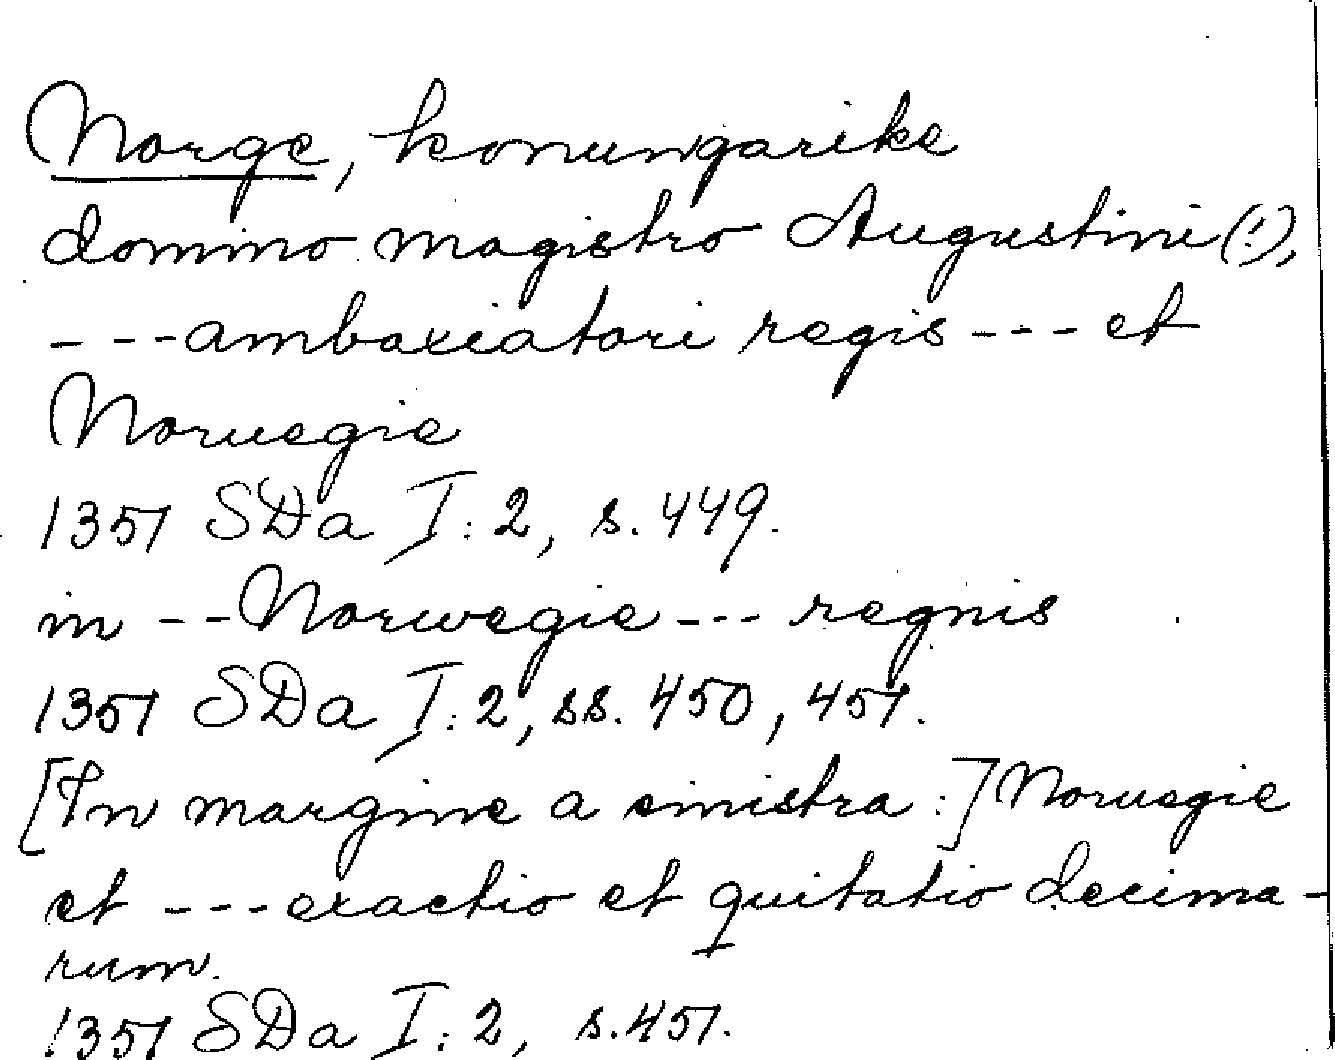 Norge, konungarike
domino magistro Augustini (!),
- - - ambaxiatori regis - - - et
Noruegie
1351 SDa I: 2, s. 449.
in - - Norwegie - - - regnis
1351 SDa I: 2, ss. 450, 451.
[In margine a sinistra :] Noruegie
et - - - exactio et quitatio decima-
rum.
1351 SDa I: 2, s. 451.